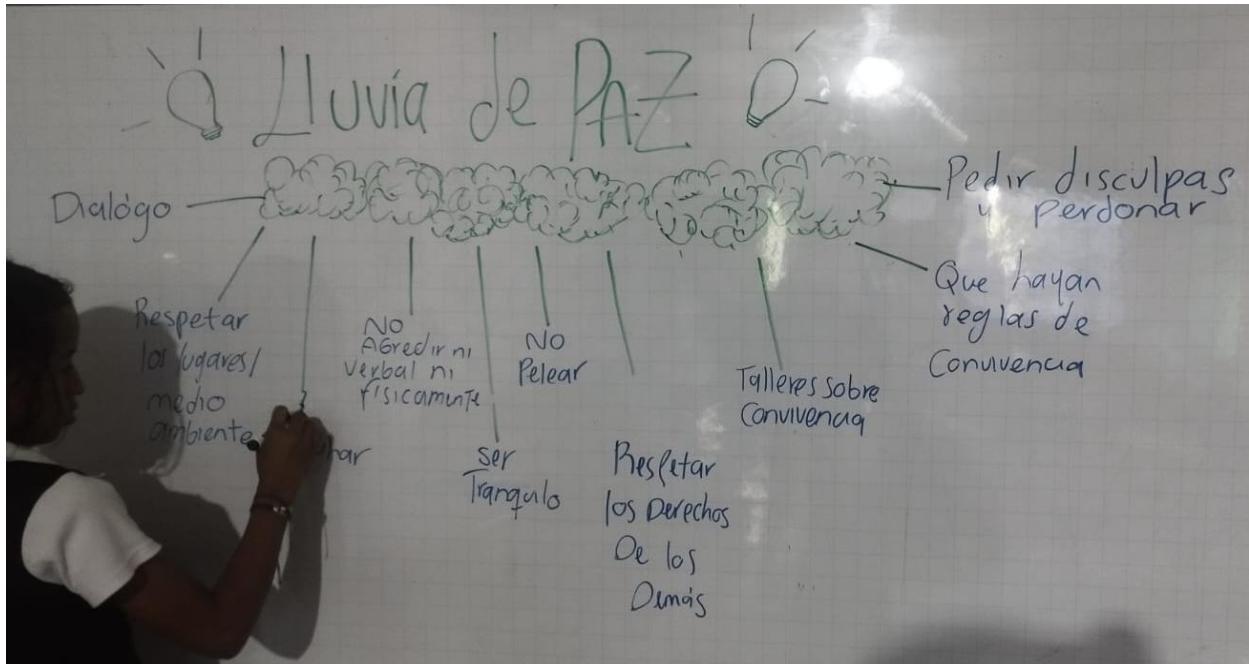 Lluvia de PAZ
Dialógo
Respetar
los lugares/
medio
ambiente
NO
AGredir ni
verbal ni
físicamente
Ser
Tranqulo
NO
Pelear
Respetar
los Derechos
De los
Demás
Talleres sobre
Convivencia
Que hayan
reglas de
Convivencia
Pedir disculpas
y perdonar